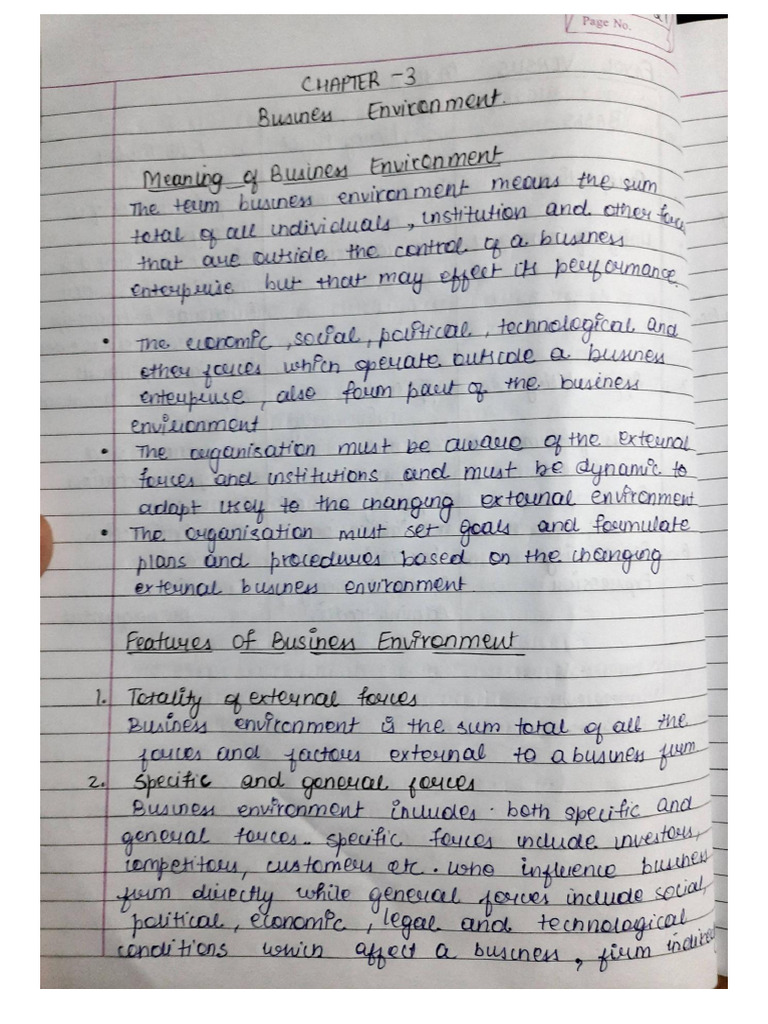 Page No.
CHAPTER -3
Business Environment.
Meaning of Business Environment
The term business environment means the sum
total of all individuals, institution and other forc
that are outside the control of a business
enterprise but that may effect its performance.
• The economic, social, political, technological and
other forces which operate outside a business
enterprise, also form part of the business
environment
• The organisation must be aware of the external
forces and institutions and must be dynamic to
adapt itself to the changing external environment
• The organisation must set goals and formulate
plans and procedures based on the changing
external business environment
Features of Business Environment
1. Totality of external forces
Business environment is the sum total of all the
forces and factors external to a business firm
2. Specific and general forces
Business environment includes both specific and
general forces. specific forces include investors,
competitors, customers etc. who influence business
firm directly while general forces include social,
political, economic, legal and technological
conditions which affect a business, firm indirect